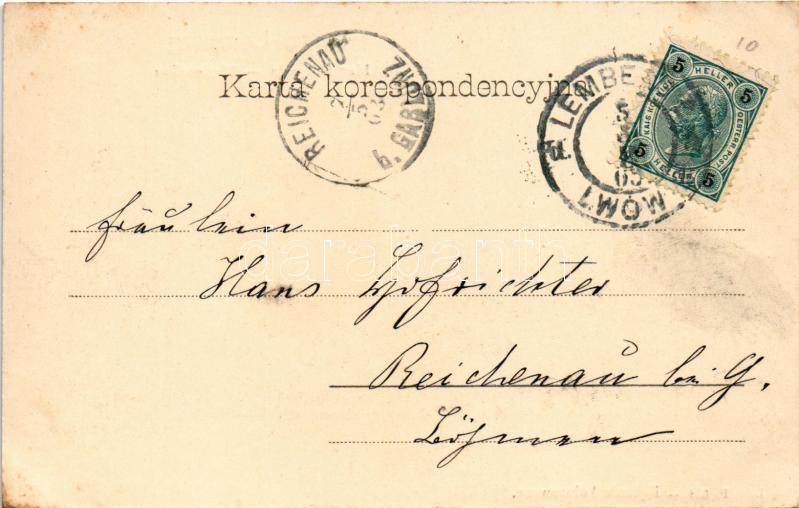 10
Karta korespondencyjna
REICHENAU b. GABLONZ
LEMBERG LWÓW
03
5 HELLER 5
KAIS. KÖNIGL. OESTERR. POST
5 HELLER 5
Fräulein
Hans Hofrichter
Reichenau bei G.
Böhmen
darabanth